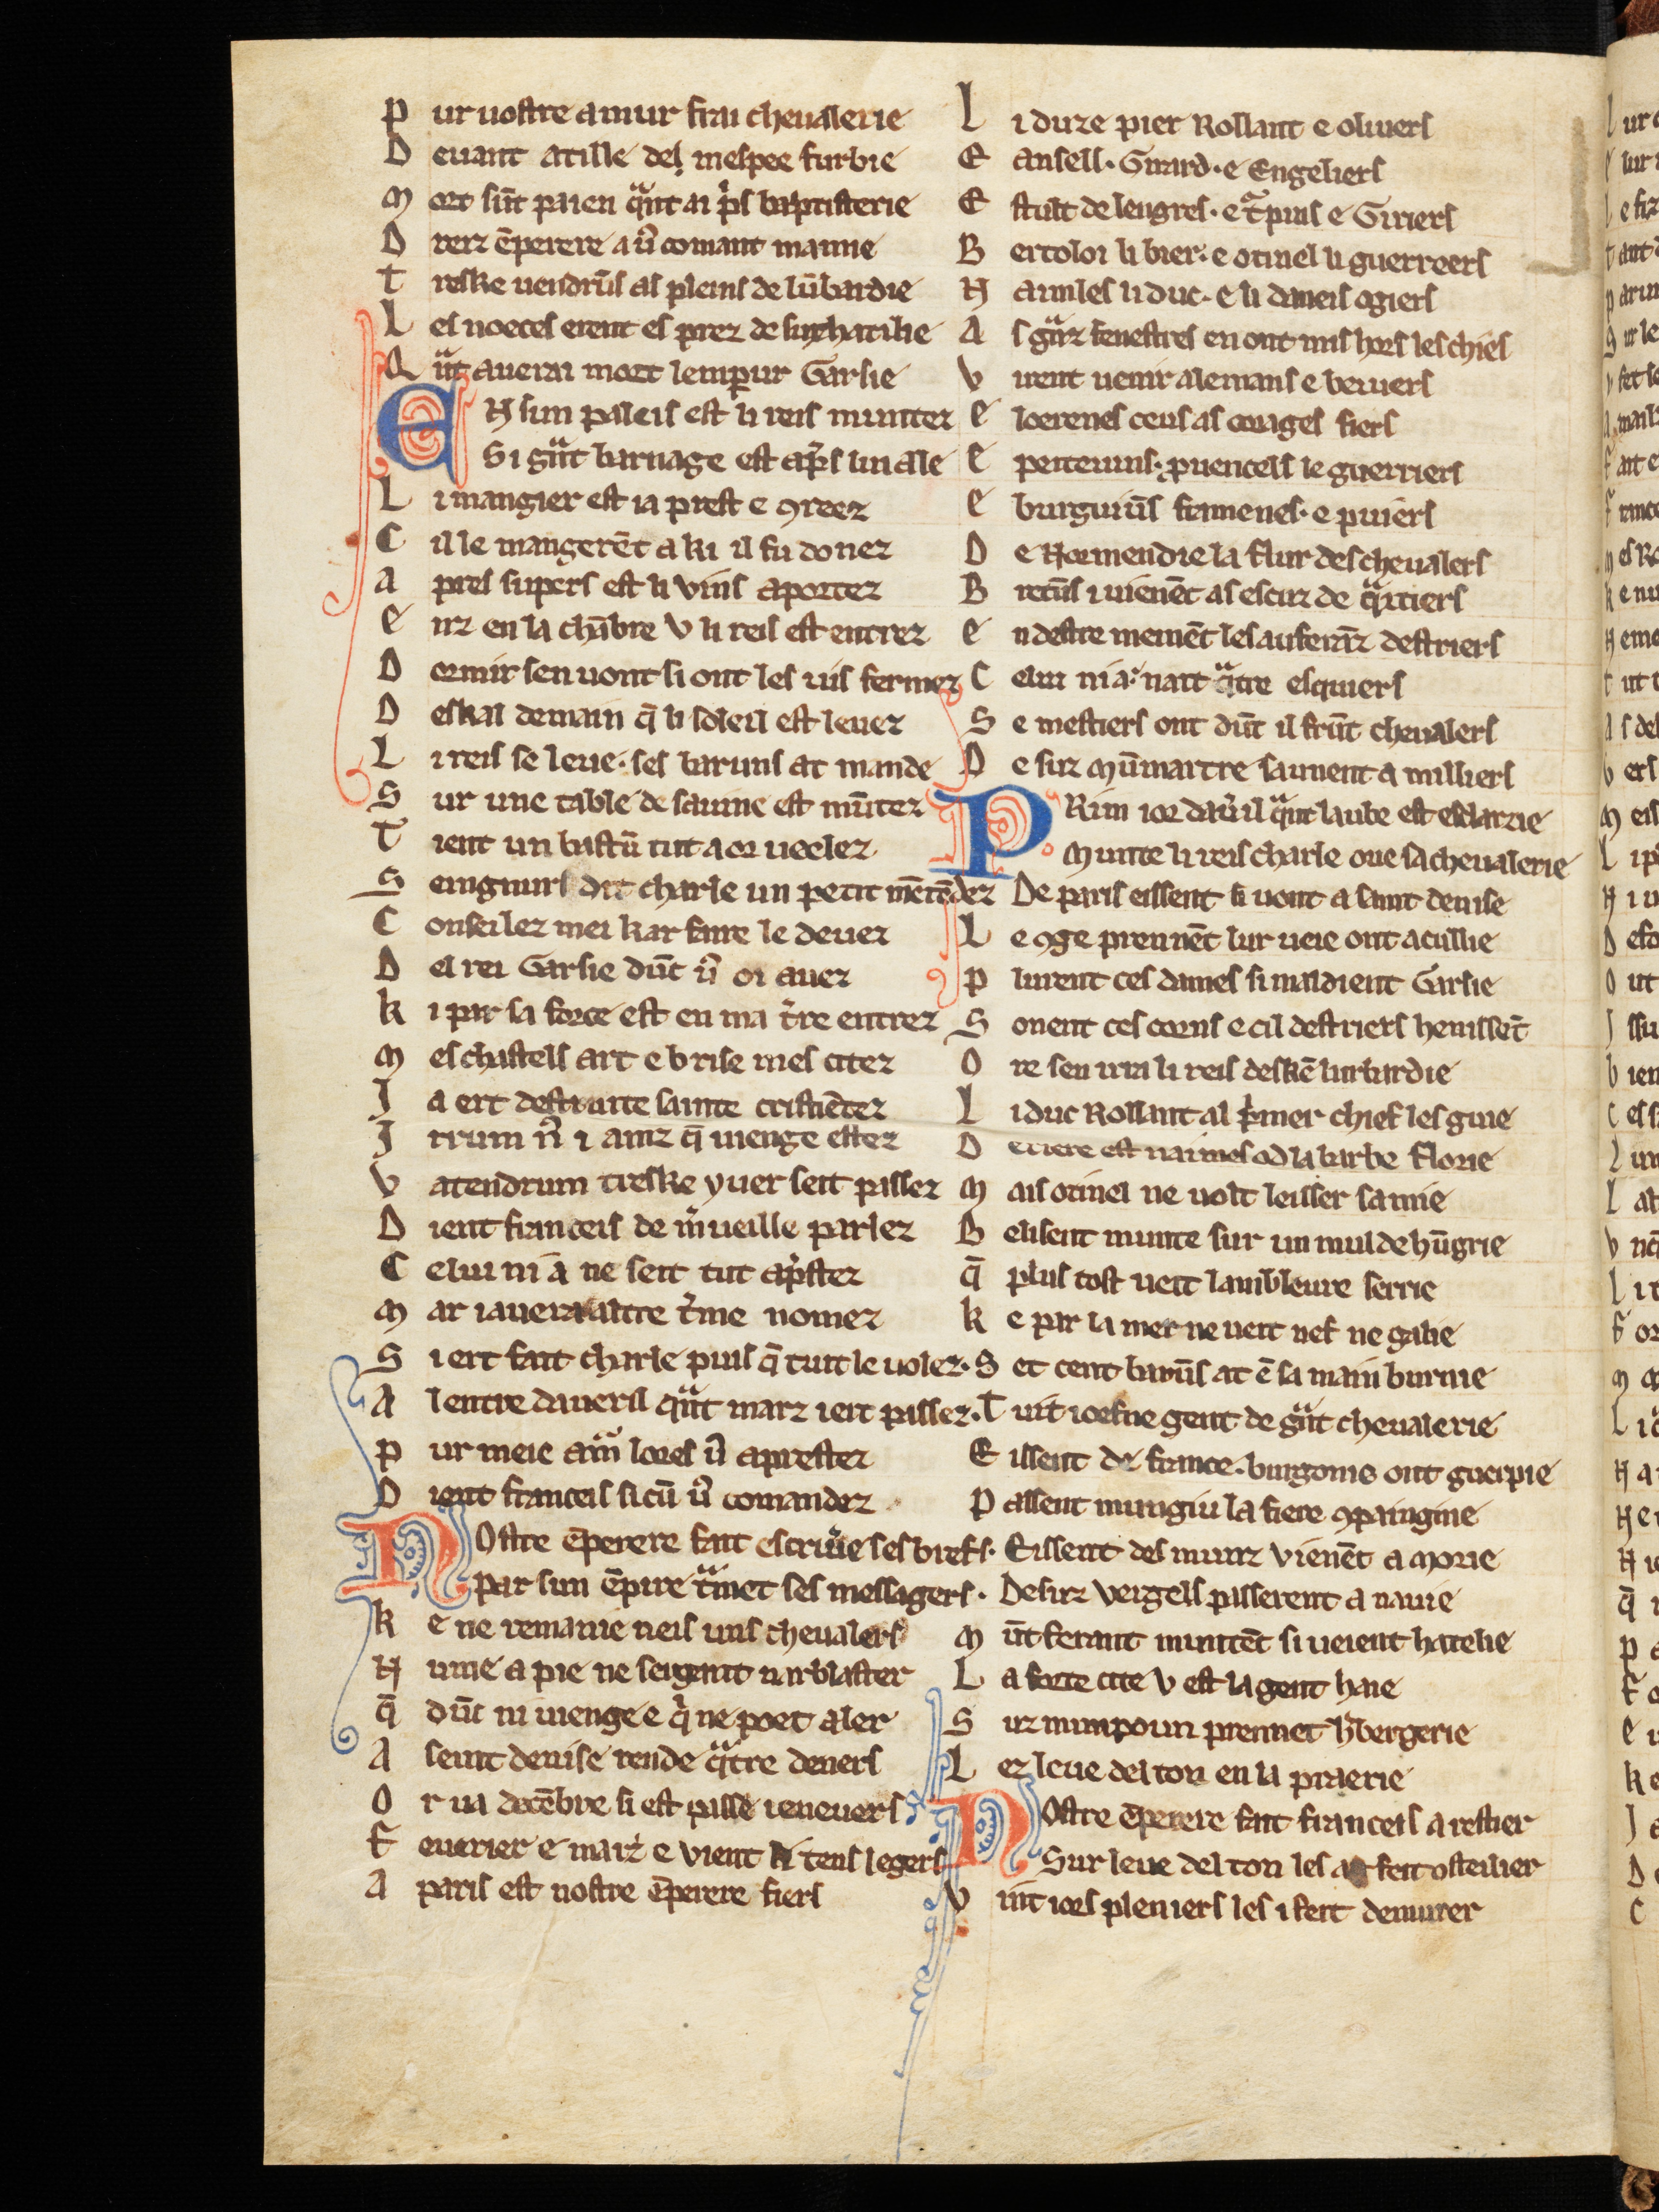 P ur uostre amur frai cheualerie
D euant atille del mespee furbie
M ort sūt paien qͣnt ai pͥs baptisterie
D rerz ēperere a ur̄o comant mamie
T reske uendrūs as pleins de lūbardie
L es noeces erent es prez de suz hatilie
Q ͣnt auerai mort lempur Garsie
E N sun paleis est li reis muntez
Si gͣnt barnage est apͥs lui ale
L i mangier est ia prest e ꝯreez
C il le mangerēt a ki il fu donez
A pres supers est li vins aportez
E nz en la chābre v li reis est entrez
D ormir sen uont si ont les uis fermez
D eskal demain q̄ li soleil est leuez
L i reis se leue. ses baruns at mande
S ur une table de sauine est mūtez
T ient un bastū tut a or neelez
S eingnurs dit charle un petit mētēdez
C onseilez mei kar faire le deuez
D el rei Garsie dūt u᷑ oi auez
K i par sa force est en ma t᷑re entrez
M es chastels art e brise mes citez
J a ert destruite sainte cristiētez
J rrum n᷑ i ainz q̄ uienge estez
V atendrum treske yuer seit passez
D ient franceis de m᷑ueille parlez
C elui ni a ne seit tut apͥstez
M ar i auera altre t᷑me nomez
S i ert fait charle puis q̄ tuit le uolez.
A lentre daueril qͣnt marz iert passez.
P ur meie amͬ lores u᷑ aprestez
D ient franceis si cū u᷑ comandez
N Ostre ēperere fait escriu᷑e ses brefs.
Par sun ēpire tͣmet ses messagers.
K e ne remanie neis uns cheualers
N ume a pie ne seigent ni arblaster
Q̄ dūt ni uienge e q̄ ne poet aler
A seint denise rende qͣtre deners
O r ua decēbre si est passe ieneuers
F euerier e marz e vient li tens legers
A paris est nostre ēperere fiers
L i duze pier Rollant e oliuers
E ansell. Girard. e Engeliers
E stult de lengres. e tͣpins e Giriers
B ertoloi li bier. e otinel li guerreers
N aimles li duc. e li daneis ogiers
A s gͣnz fenestres en ont mis hors les chiés
V irent uenir alemans e beiuers
E loerenes ceus as corages fiers
E peiteuins. puencels le guerriers
E burguiūs flamenes. e puiers
D e Normendie la flur des cheualers
B retūs i uienēt as escuz de qͣrtiers
E n destre meinēt les auferāz destriers
C elui ni a. nait qͣtre esquiers
S e mestiers ont dūt il frūt cheualers
D e suz Mūmartre saunent a milliers
P Rim ior dau᷑il qͣnt laube est esclarzie
Munte li reis charle oue sa cheualerie
De paris eissent si uont a saint denise
L e ꝯge prennēt lur ueie ont acullie
P lurent ces dames si maldient Garsie
S onent ces corns e cil destriers henissēt
O re sen irra li reis deskē lurbardie
L i duc Rollant al p᷑mer chief les guie
D eriere est naimes od la barbe florie
M ais otinel ne uolt leisser samie
B elisent munte sur un mul de hūgrie
Q̄ plus tost ueit lambleure serrie
K e par la mer ne ueit nef ne galie
S et cent barūs at ē sa main burnie
T uit ioefne gent de gͣnt cheualerie
E issent de france. burgoine ont guerpie
P assent mungiu la fiere ꝯpaingine
Eissent des munz vienēt a Morie
Desuz vergels passerent a nauie
M ūtferant muntēt si ueient hatelie
L a forte cite v est la gent haie
S uz munpoun prennet h᷑bergerie
L ez leue del ton en la praerie
N Ostre ēperere fait franceis arestier
Sur leue del ton les a fait osteilier
V uit iors pleniers les i feit demurer